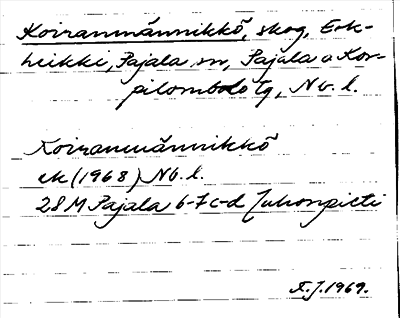 Koiranmännikkö, skog, Erk-
heikki, Pajala sn, Pajala o Kor-
pilombolo tg, Nb. l.
Koiranmännikkö
ek (1968) Nb. l.
28 M Pajala 6-7 c-d Juhonpieti
1969.